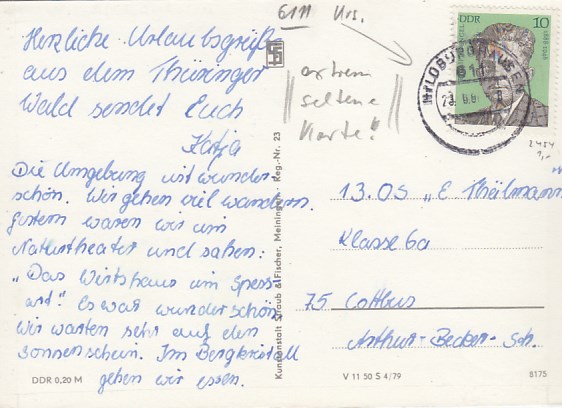 Herzliche Urlaubsgrüße
aus dem Thüringer
Wald sendet Euch
Katja
Die Umgebung ist wunder-
schön. Wir gehen viel wandern.
Gestern waren wir im
Naturtheater und sahen:
„Das Wirtshaus im Spess-
art". Es war wunderschön.
Wir warten sehr auf den
Sonnenschein. Im Bergkristall
gehen wir essen.
DDR 0,20 M
Kunstanstalt Straub & Fischer, Meiningen · Reg.-Nr. 23
6111 Hrs.
extrem
seltene
Karte!
DDR 10
HILDBURGHAUSEN
611
2484
13. OS „E. Thälmann"
Klasse 6a
75 Cottbus
Arthur-Becker-Str.
V 11 50 S 4/79
8175